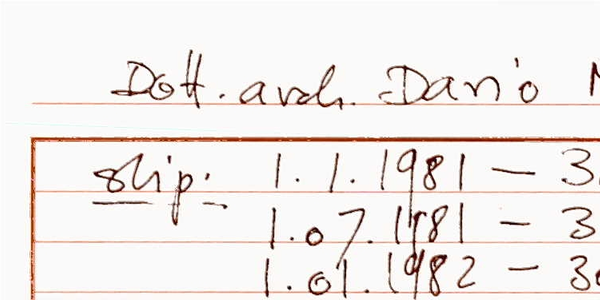 Dott. arch. Dario
stip. 1.1.1981 – 3
1.07.1981 – 3
1.01.1982 – 3